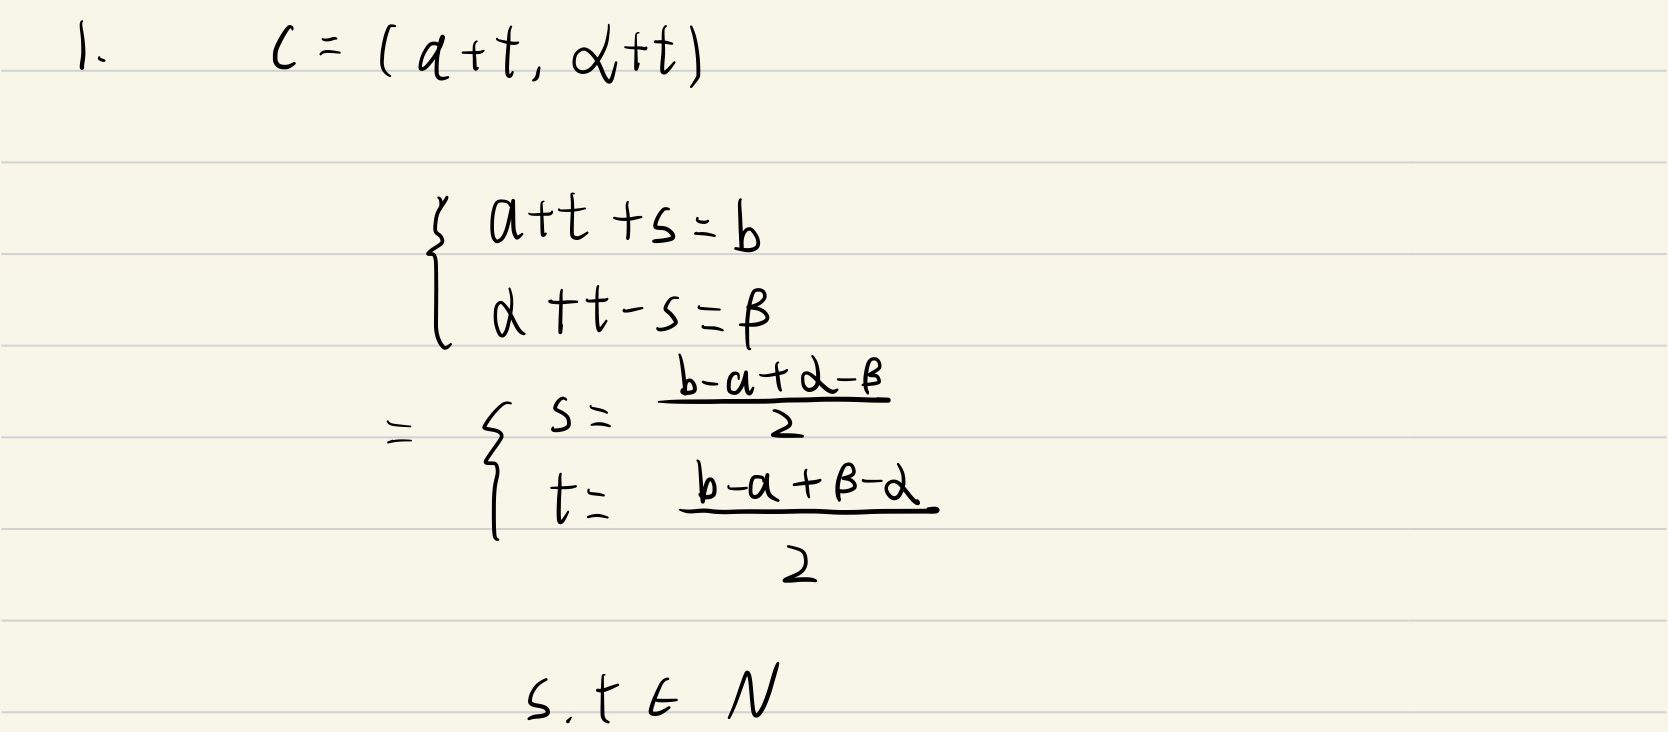 1. C = (a+t, α+t)
{ a+t+s = b
α+t-s = β
= { s = (b-a+α-β)/2
t = (b-a+β-α)/2
s.t ∈ N